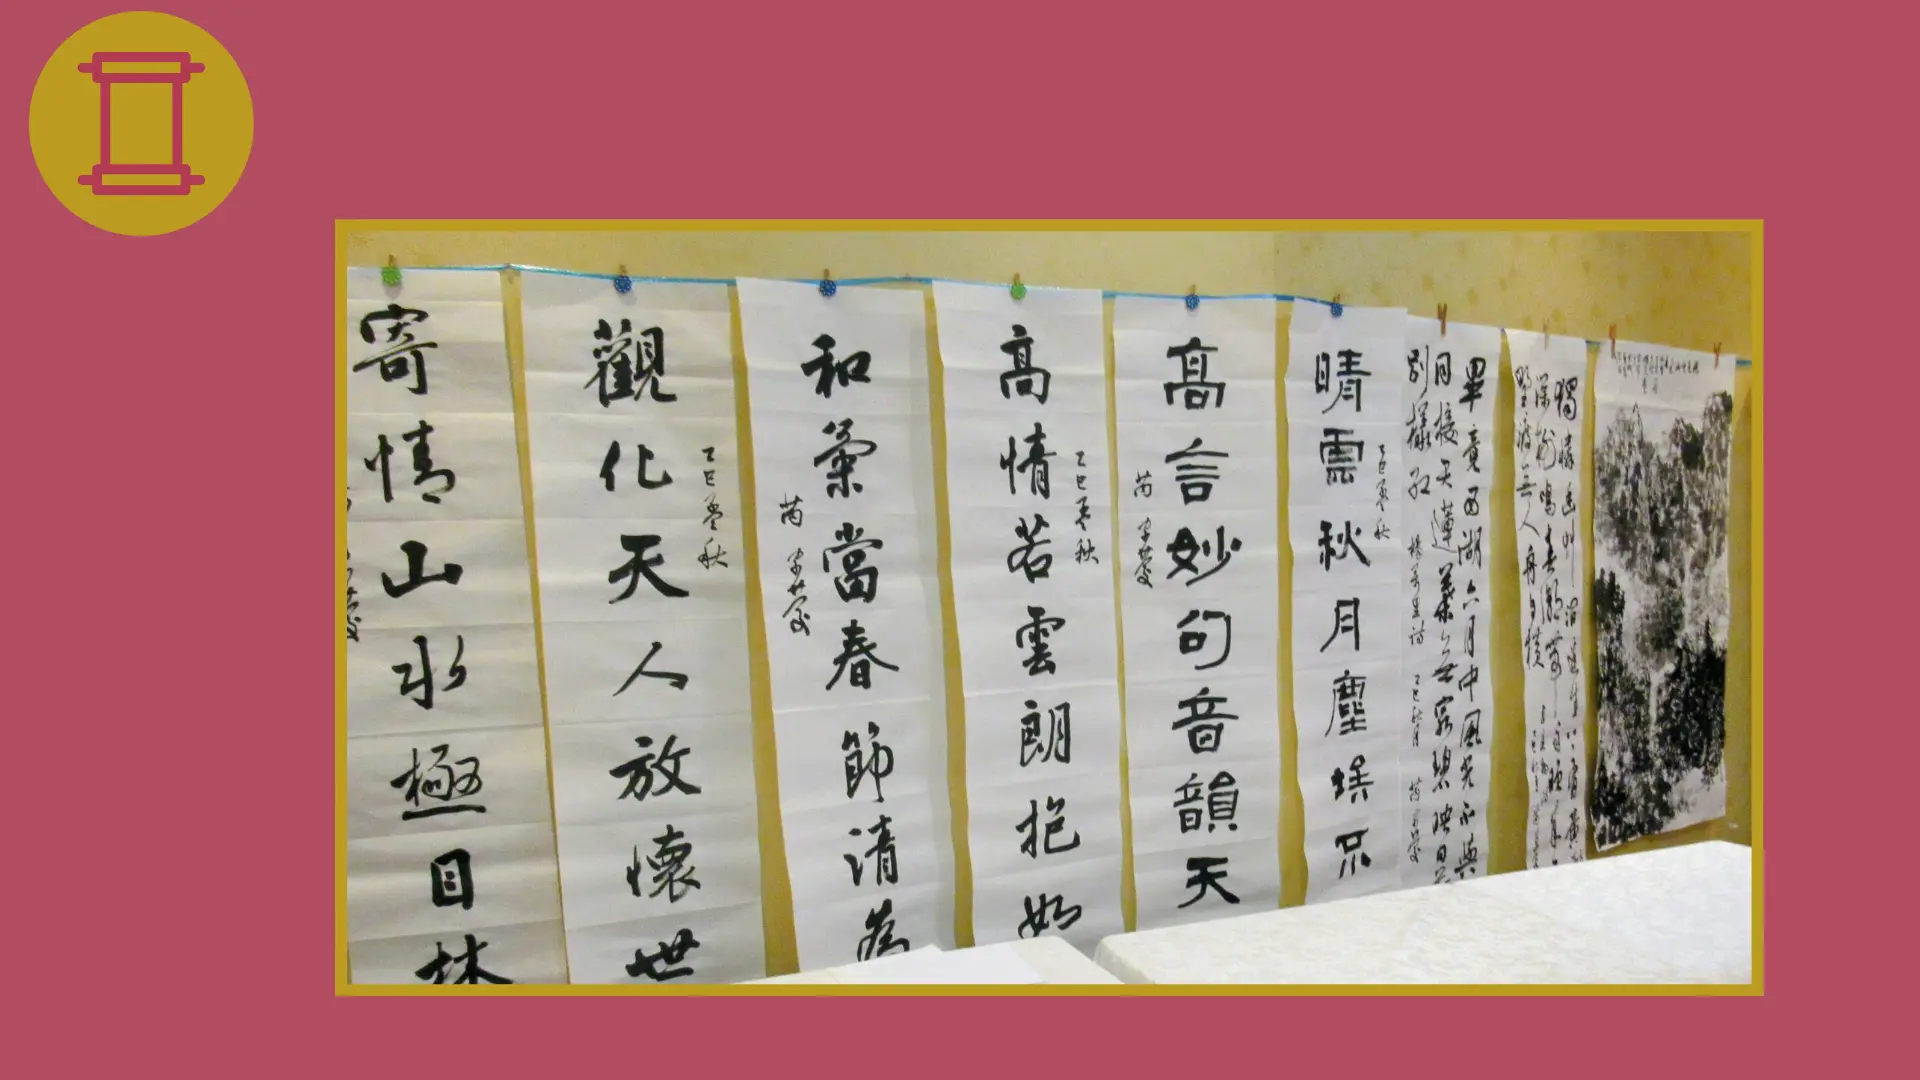 寄情山水極目林
乙巳孟秋
觀化天人放懷世
和氣當春節清為
芮
乙巳孟秋
高情若雲朗抱如
高言妙句音韻天
芮
乙巳孟秋
晴雲秋月塵埃不
畢竟西湖六月中風光不與
月接天蓮葉無窮碧映日荷
別樣紅 楊萬里詩 乙巳秋月 芮
獨憐幽草澗邊生上有黃
深樹鳴春潮帶雨晚來
野渡無人舟自橫